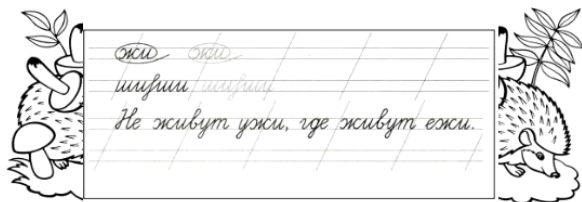 жи жи
шиши шиши
Не живут ужи, где живут ежи.